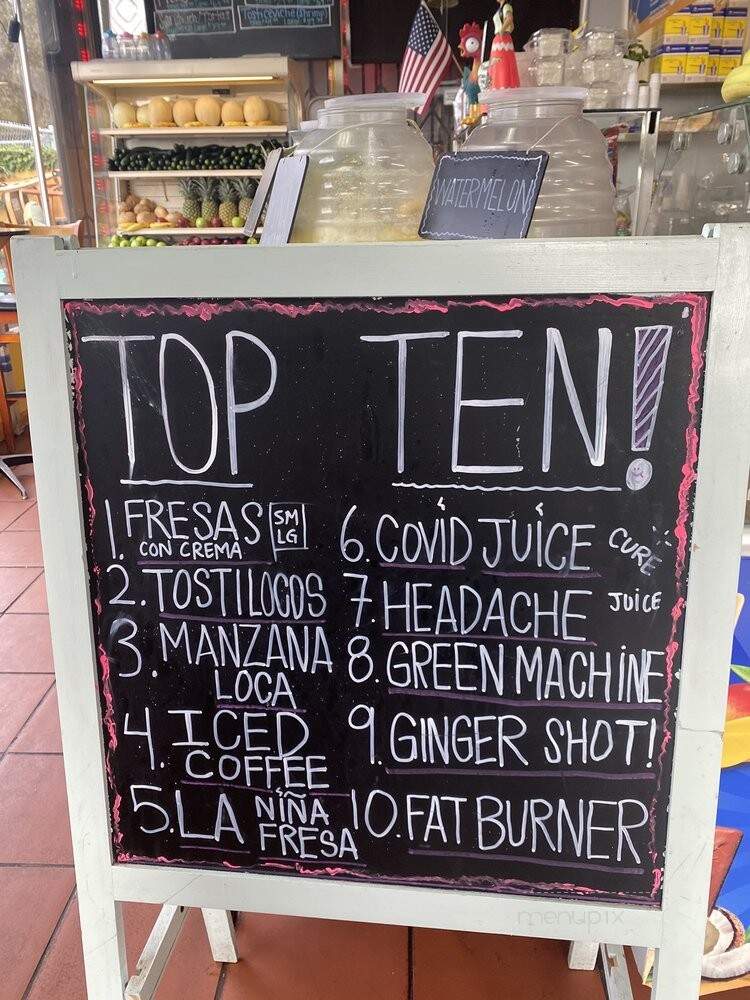 WATERMELON
TOP TEN!
1. FRESAS SM
CON CREMA LG
2. TOSTILOCOS
3. MANZANA
LOCA
4. ICED
COFFEE
5. LA NIÑA
FRESA
6. COVID JUICE CURE
7. HEADACHE JUICE
8. GREEN MACHINE
9. GINGER SHOT!
10. FAT BURNER
menupix